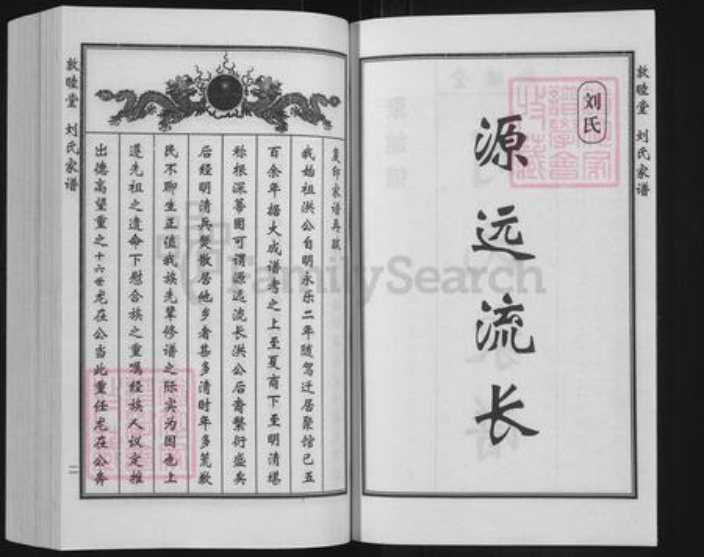 敦睦堂 刘氏家谱
刘氏
源远流长
复印家谱再跋
我始祖洪公自明永乐二年随驾迁居聚馆已五
百余年据大成谱考之上至夏商下至明清堪
称根深蒂固可谓源远流长洪公后裔繁衍盛矣
后经明清兵燹散居他乡者甚多清时年多荒歉
民不聊生正值我族先辈修谱之际实为困也上
遵先祖之遗命下慰合族之重嘱经族人议定推
出德高望重之十六世龙在公当此重任龙在公奔
敦睦堂 刘氏家谱
二
FamilySearch